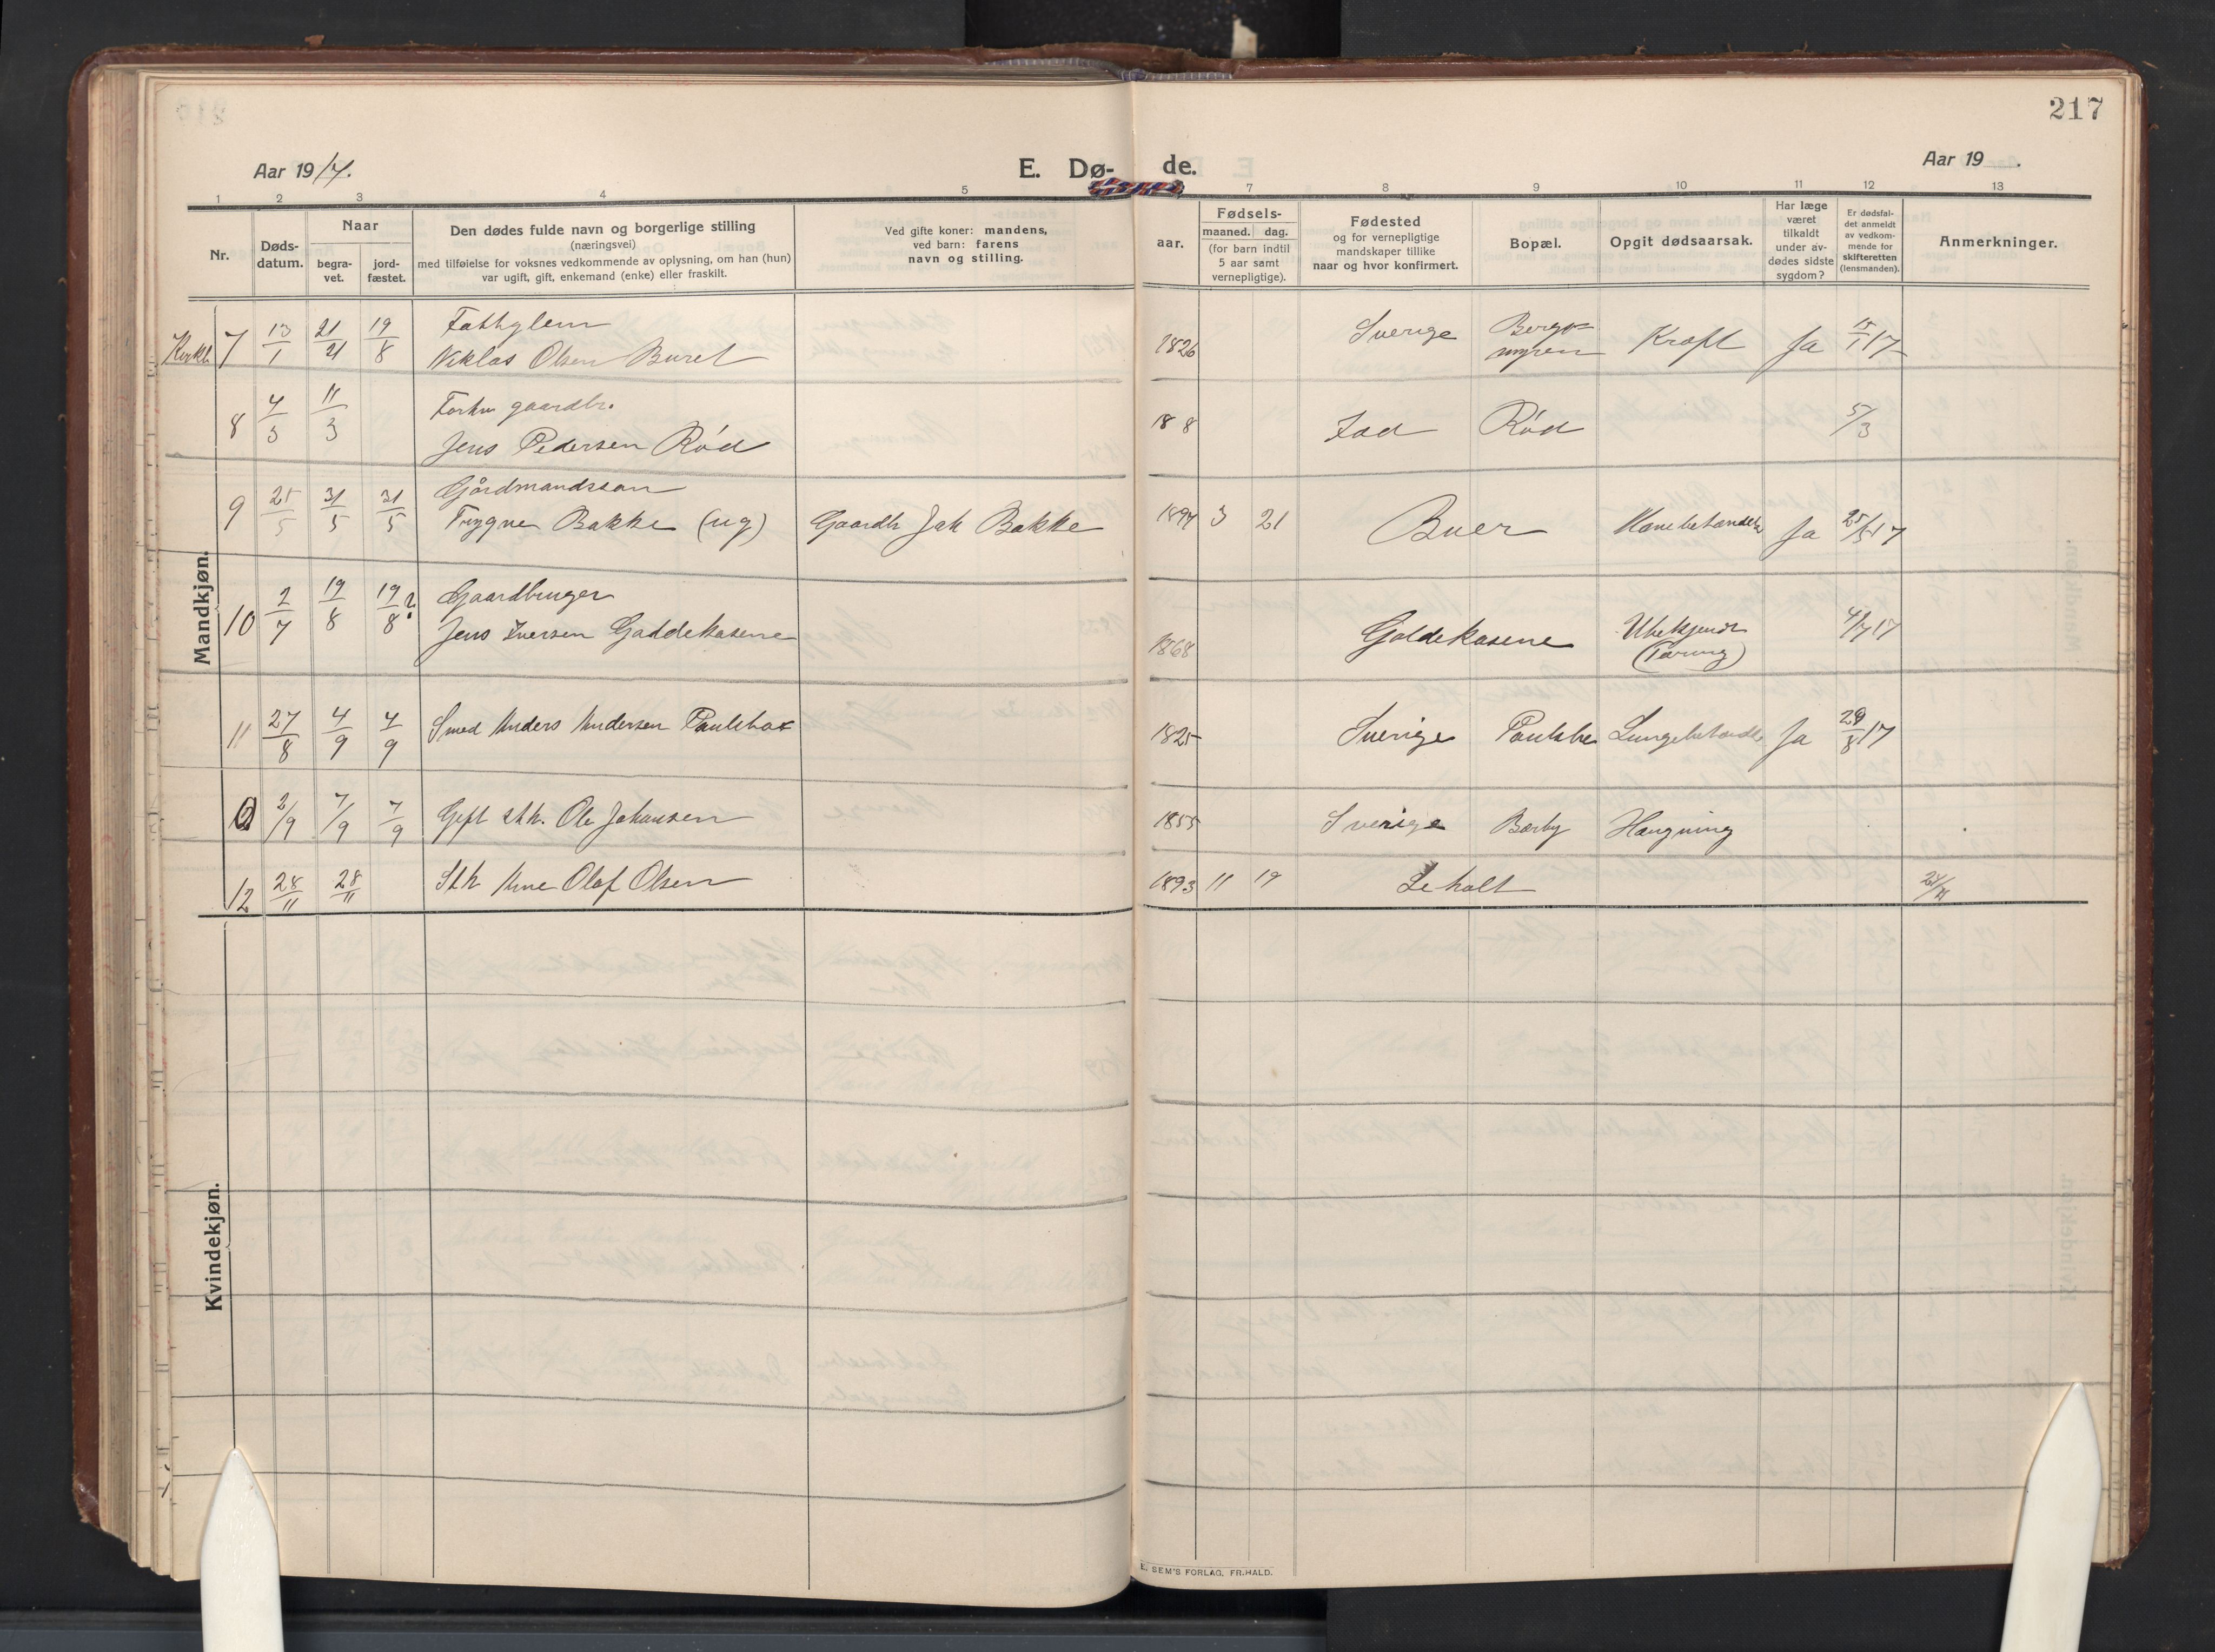 217
Aar 1917.
E. Dø-
de.
Aar 19 .
1 2 3 4 5 7 8 9 10 11 12 13
Nr.
Døds-
datum.
Naar
begra-
vet.
jord-
fæstet.
Den dødes fulde navn og borgerlige stilling
(næringsvei)
med tilføielse for voksnes vedkommende av oplysning, om han (hun)
var ugift, gift, enkemand (enke) eller fraskilt.
Ved gifte koner: mandens,
ved barn: farens
navn og stilling.
aar.
Fødsels-
maaned. dag.
(for barn indtil
5 aar samt
vernepligtige).
Fødested
og for vernepligtige
mandskaper tillike
naar og hvor konfirmert.
Bopæl.
Opgit dødsaarsak.
Har læge
været
tilkaldt
under av-
dødes sidste
sygdom?
Er dødsfal-
det anmeldt
av vedkom-
mende for
skifteretten
(lensmanden).
Anmerkninger.
Mandkjøn.
7 13/1 19/8
Niklas Olsen Buret
1826 Sverige Kræft Ja 15/1 17
8 4/3 11/3
Jens Pedersen Rød
Rød 5/3
9 25/5 31/5 31/5 Gårdmandssøn
Trygve Bakke (ug) Gaardb Jak Bakke
1897 3 21 Buer Ja 25/5 17
10 2/7 19/8 19/8? Gaardbruger
Jens Iversen Gaddekasene
1868 Goldekasene Ubekjendt
(Tæring) 4/7 17
11 27/8 4/9 4/9 Smed Anders Andersen
1825 Sverige Ja 29/8 17
2/9 7/9 7/9 Gift Ole Johansen
1855 Sverige Bærby Hængning
12 28/11 28/11 Arne Olaf Olsen
1893 11 19 Leholt
Kvindekjøn.
E. SEM'S FORLAG, FR.HALD.